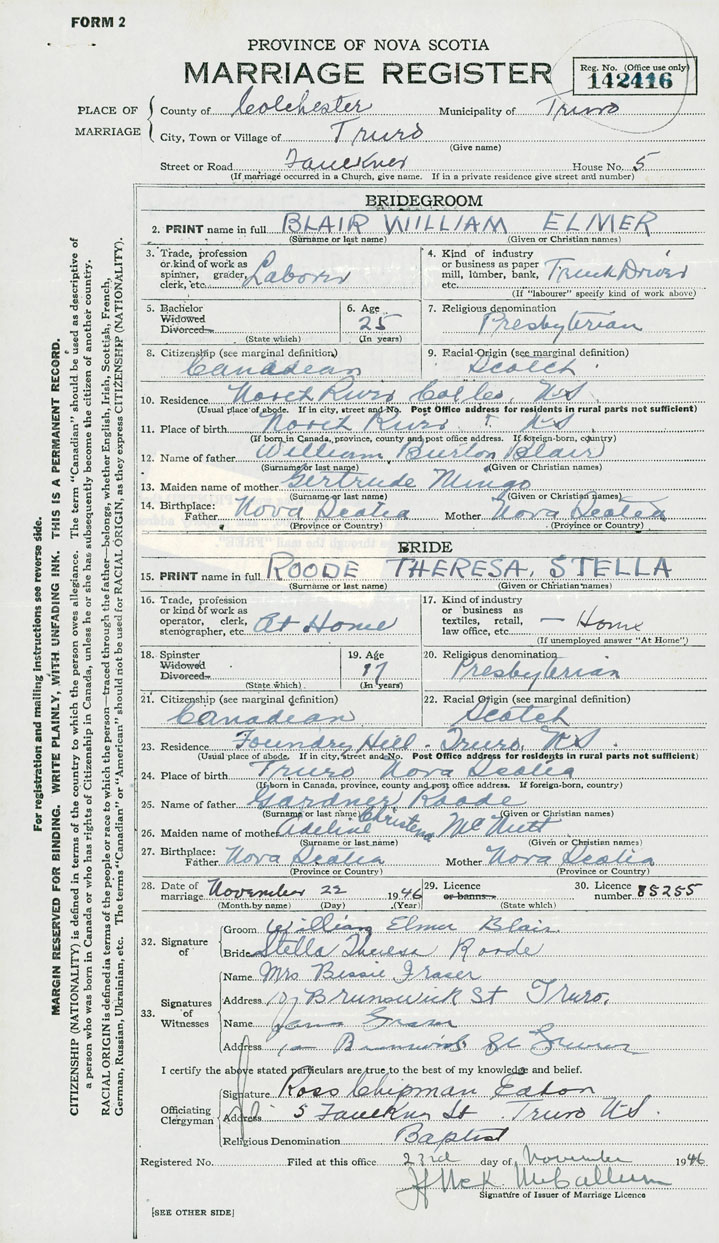 FORM 2
PROVINCE OF NOVA SCOTIA
MARRIAGE REGISTER
Reg. No. (Office use only)
142416
PLACE OF MARRIAGE
County of Colchester Municipality of Truro
City, Town or Village of Truro
(Give name)
Street or Road Faulkner House No. 5
(If marriage occurred in a Church, give name. If in a private residence give street and number)
BRIDEGROOM
2. PRINT name in full BLAIR WILLIAM ELMER
(Surname or last name) (Given or Christian names)
3. Trade, profession or kind of work as spinner, grader, clerk, etc. Laborer
4. Kind of industry or business as paper mill, lumber, bank, etc. Truck Driver
(If "labourer" specify kind of work above)
5. Bachelor Widowed Divorced
(State which)
6. Age 25
(In years)
7. Religious denomination
Presbyterian
8. Citizenship (see marginal definition)
Canadian
9. Racial Origin (see marginal definition)
Scotch
10. Residence North River Colche. N.S
(Usual place of abode. If in city, street and No. Post Office address for residents in rural parts not sufficient)
11. Place of birth North River N.S
(If born in Canada, province, county and post office address. If foreign-born, country)
12. Name of father William Burton Blair
(Surname or last name) (Given or Christian names)
13. Maiden name of mother Gertrude Mingo
(Surname or last name) (Given or Christian names)
14. Birthplace: Father Nova Scotia Mother Nova Scotia
(Province or Country) (Province or Country)
BRIDE
15. PRINT name in full ROODE THERESA, STELLA
(Surname or last name) (Given or Christian names)
16. Trade, profession or kind of work as operator, clerk, stenographer, etc. At Home
17. Kind of industry or business as textiles, retail, law office, etc. — Home
(If unemployed answer "At Home")
18. Spinster Widowed Divorced
(State which)
19. Age 17
(In years)
20. Religious denomination
Presbyterian
21. Citizenship (see marginal definition)
Canadian
22. Racial Origin (see marginal definition)
Scotch
23. Residence Foundry Hill - Truro, N.S
(Usual place of abode. If in city, street and No. Post Office address for residents in rural parts not sufficient)
24. Place of birth Truro Nova Scotia
(If born in Canada, province, county and post office address. If foreign-born, country)
25. Name of father Gardner Roode
(Surname or last name) (Given or Christian names)
26. Maiden name of mother Adeline Christena McNutt
(Surname or last name) (Given or Christian names)
27. Birthplace: Father Nova Scotia Mother Nova Scotia
(Province or Country) (Province or Country)
28. Date of marriage November 22 1946
(Month by name) (Day) (Year)
29. Licence or banns
(State which)
30. Licence number 85255
32. Signature of
Groom William Elmer Blair
Bride Stella Therese Roode
33. Signatures of Witnesses
Name Mrs Bessie Fraser
Address Brunswick St Truro.
Name Fraser
Address Brunswick St Truro
I certify the above stated particulars are true to the best of my knowledge and belief.
Officiating Clergyman
Signature Ross Chipman Eaton
Address 5 Faulkner St Truro N.S.
Religious Denomination Baptist
Registered No. Filed at this office 23rd day of November 1946
McCallum
Signature of Issuer of Marriage Licence
[SEE OTHER SIDE]
For registration and mailing instructions see reverse side.
MARGIN RESERVED FOR BINDING. WRITE PLAINLY, WITH UNFADING INK. THIS IS A PERMANENT RECORD.
CITIZENSHIP (NATIONALITY) is defined in terms of the country to which the person owes allegiance. The term "Canadian" should be used as descriptive of
a person who was born in Canada or who has rights of Citizenship in Canada, unless he or she has subsequently become the citizen of another country.
RACIAL ORIGIN is defined in terms of the people or race to which the person—traced through the father—belongs, whether English, Irish, Scottish, French,
German, Russian, Ukrainian, etc. The terms "Canadian" or "American" should not be used for RACIAL ORIGIN, as they express CITIZENSHIP (NATIONALITY).